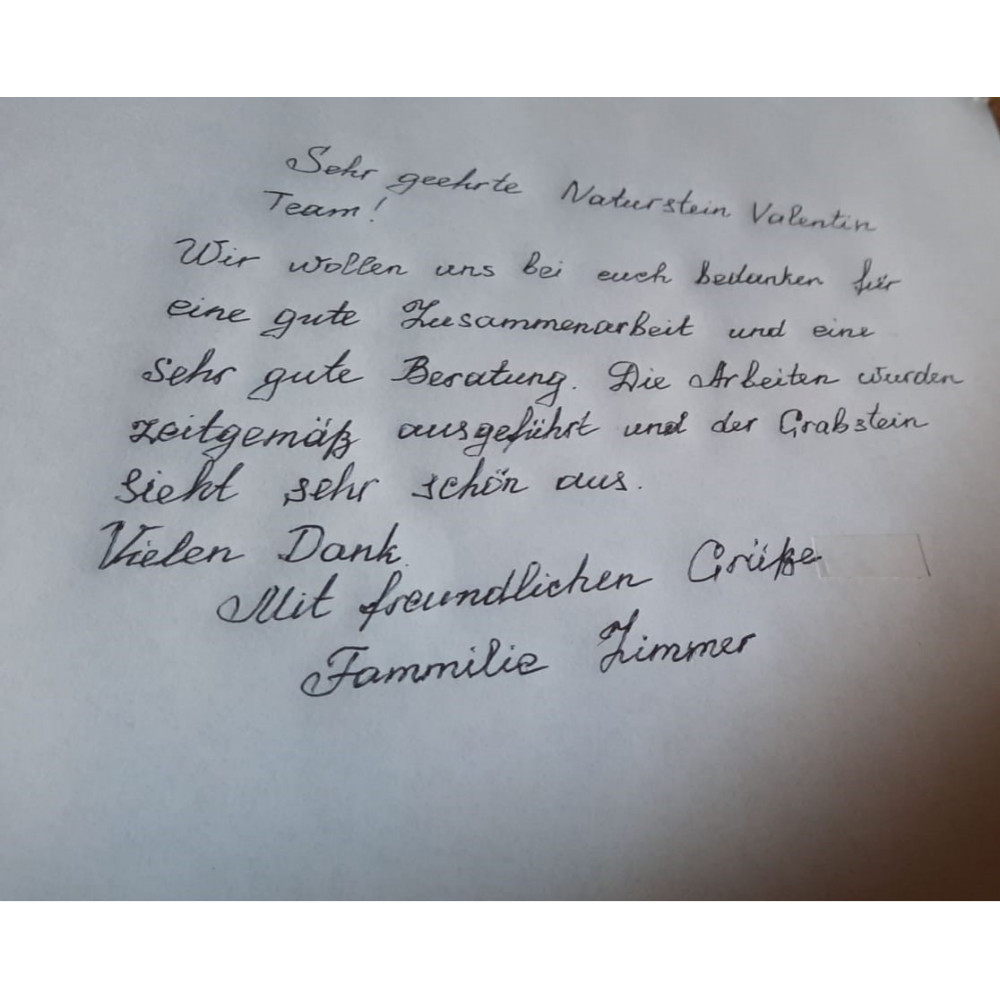 Sehr geehrte Naturstein Valentin
Team!
Wir wollen uns bei euch bedanken für
eine gute Zusammenarbeit und eine
sehr gute Beratung. Die Arbeiten wurden
zeitgemäß ausgeführt und der Grabstein
sieht sehr schön aus.
Vielen Dank.
Mit freundlichen Grüße
Fammilie Zimmer